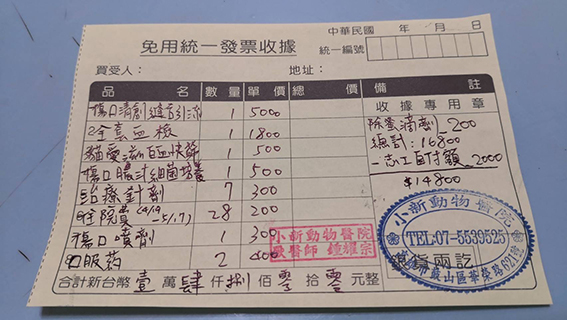 中華民國　年　月　日
免用統一發票收據
統一編號
買受人：　地址：
品　名　數量　單價　總　價　備　註
傷口清創縫合引流　1　5000
收據專用章
全套血檢　1　1800
除蚤滴劑　200
貓愛滋白血快篩　1　500
總計：16800
傷口膿汁細菌培養　1　500
－志工自付額　2000
治療針劑　7　300
$14800
住院費(4/9 5/7)　28　200
傷口噴劑　1　300
口服药　2　400
小新動物醫院
獸醫師 鍾耀宗
小新動物醫院
TEL:07-5539525
鼓山區華榮路621號
銀貨兩訖
合計新台幣 壹 萬 肆 仟 捌 佰 零 拾 零 元整